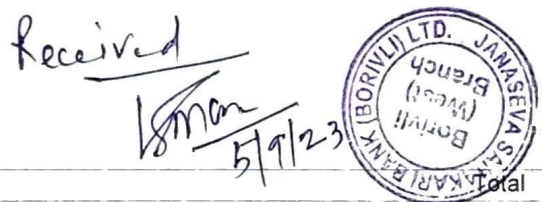 Received
5/9/23
JANASEVA SAHAKARI BANK (BORIVLI) LTD.
Borivli
(West)
Branch
Total